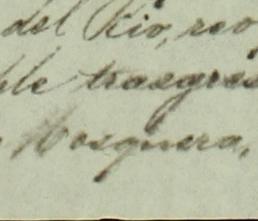 del Rio, reo
ble trasgres
Mosquera,